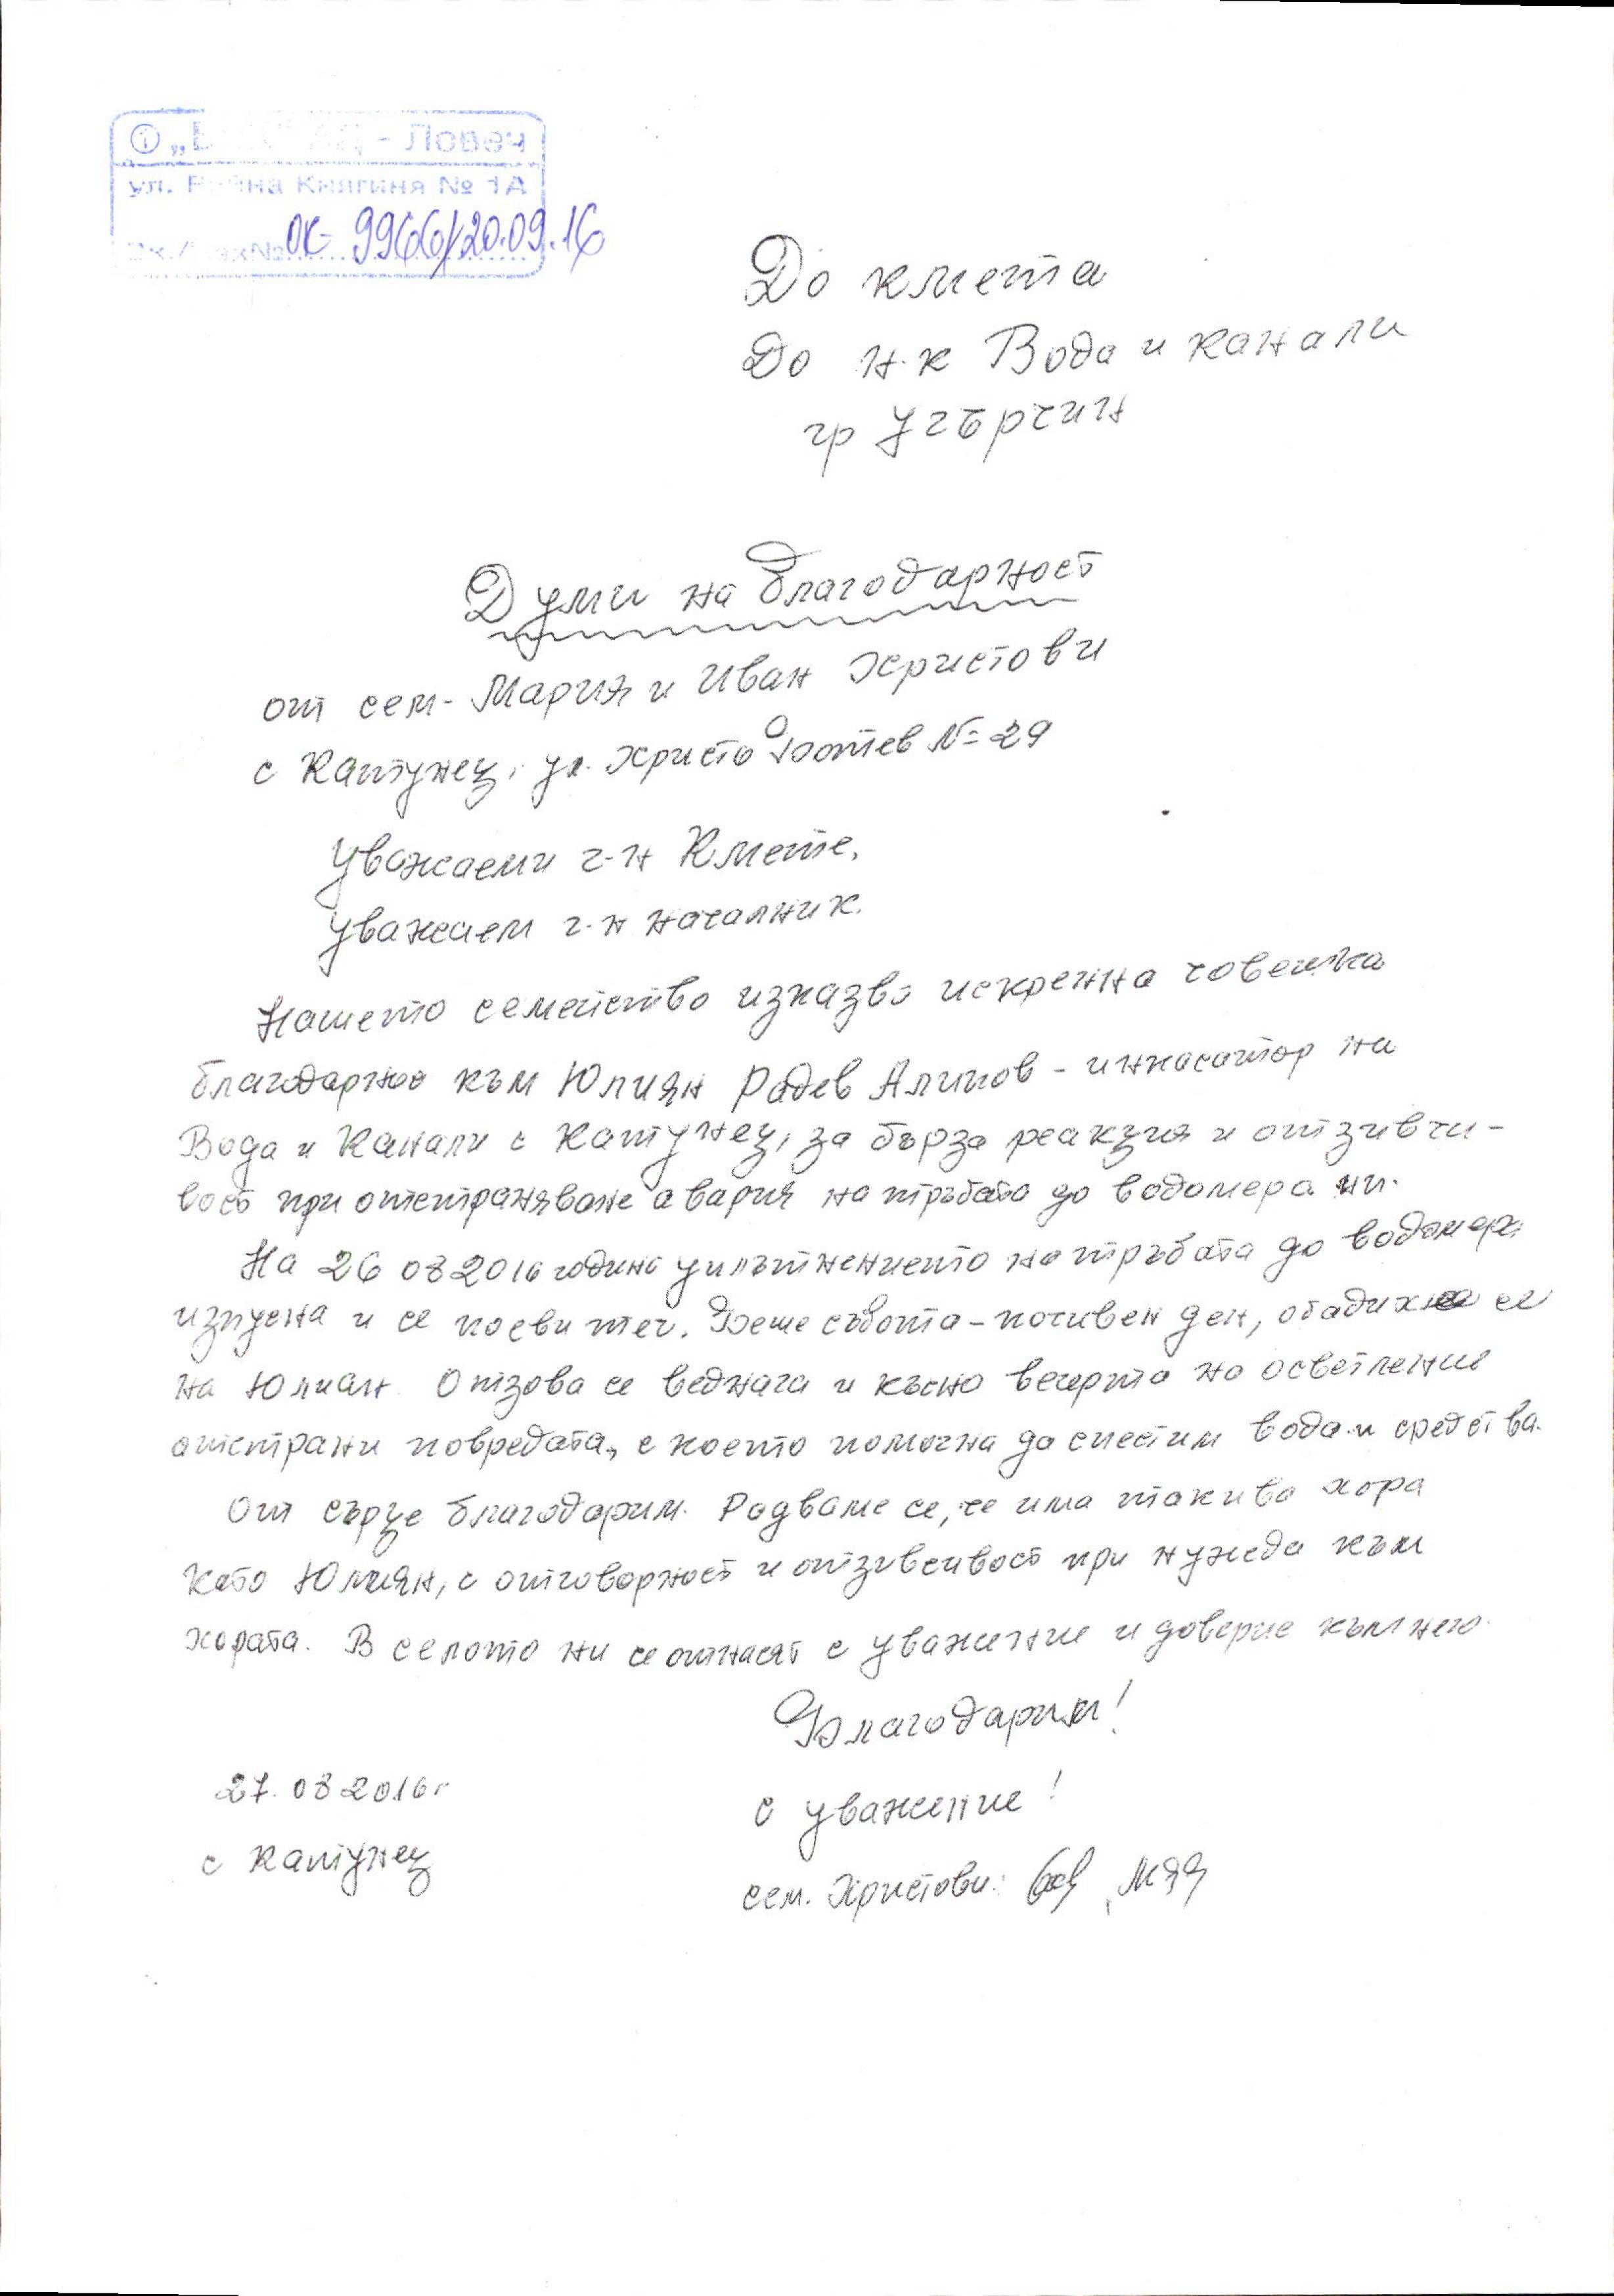 - Ловеч
ул. Княгиня № 1А
ОК-9966/20.09.16
До кмета
До н-к Вода и канали
гр Угърчин
Думи на благодарност
от сем- Мария и Иван Христови
с Катунец, ул. Христо Ботев № 29
Уважаеми г-н Кмете,
Уважаем г-н началник.
Нашето семейство изказва искренна човешка
благодарнос към Юлиян Радев Алипов - инкасатор на
Вода и Канали с Катунец, за бърза реакция и отзивчи-
вост при отстраняване авария на тръбата до водомера ни.
На 26 08 2016 година уплътнението на тръбата до водомера
изпусна и се появи теч. Беше събота - почивен ден, обадихме се
на Юлиан. Отзова се веднага и късно вечерта на осветление
отстрани повредата, с което помогна да спестим вода и средства.
От сърце благодарим. Радваме се, че има такива хора
като Юлиян, с отговорност и отзивчивост при нужда към
хората. В селото ни се отнасят с уважение и доверие към него.
Благодарим!
27.08 2016г
с уважение!
с Катунец
сем. Христови: